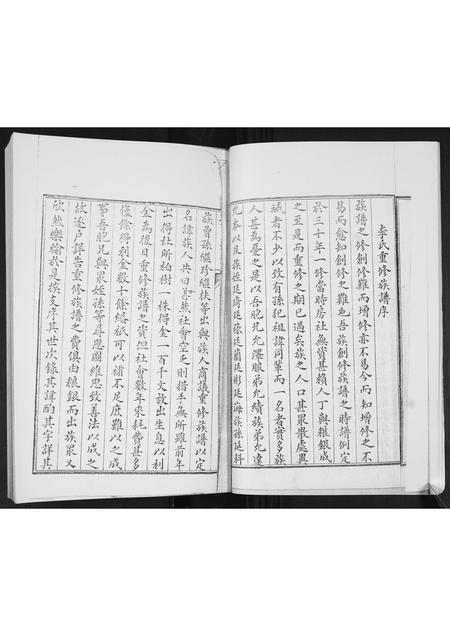 李氏重修族譜序
族譜之修創修難而增修亦不易今而知增修之不
易而愈知創修之難也吾族創修族譜之時譜例定
於三十年一修當時房社無資甚賴人丁與糧銀成
之至是而重修之期已過矣族之人口甚眾散處異
域者不少以致有孫犯祖諱同輩而一名者實多族
人甚為憂之是以吾胞兄允澤服弟允績族弟允達
允本以及族姪廷齊廷揚廷蘭廷彬廷海族孫廷科
族曾孫繼珍繼扶等出與族人商議重修族譜以定
名諱族人共曰善然社會空乏則措手無所雖前年
出得社所柏樹一株得金一百千文放出生息以利
金為後日重修族譜之資但社會數年來耗費甚多
僅餘得利金數十餘緡祇可以補不足庶難以之成
事吾胞兄與眾姪孫等尋思圖維思致善法以成之
故逐戶詳告重修族譜之費俱由糧銀而出族眾又
欣然樂輸於是挨支序其世次錄其諱酌其字詳其